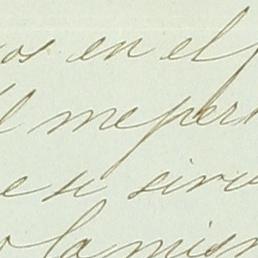 os en el p
l me perm
e si sirv
o la mism